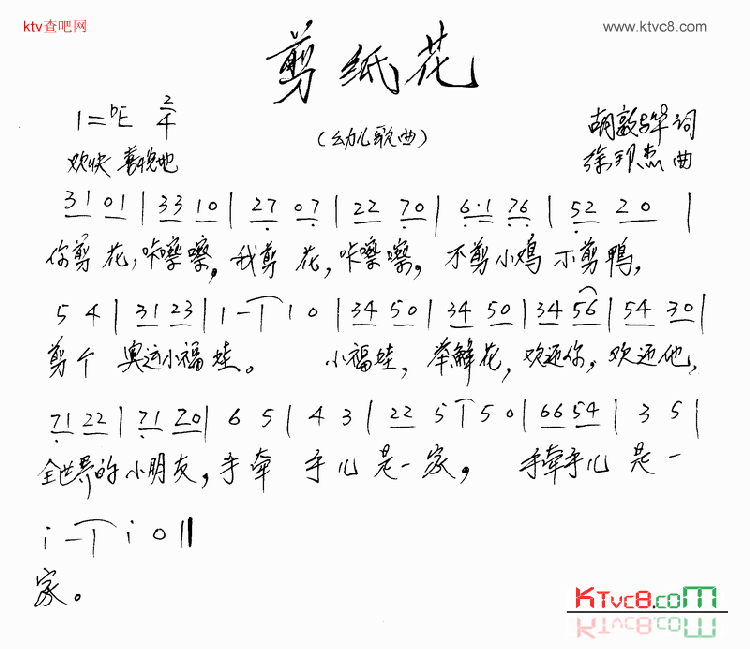 ktv查吧网
www.ktvc8.com
剪纸花
1=♭E 2/4
(幼儿歌曲)
胡敦骅词
欢快 喜悦地
徐邦杰曲
31 01 | 33 10 | 27 07 | 22 70 | 6·1 76 | 52 20 |
你剪花,咔嚓嚓。我剪花,咔嚓嚓。不剪小鸡不剪鸭,
5 4 | 31 23 | 1 - | 1 0 | 34 50 | 34 50 | 34 56 | 54 30 |
剪个奥运小福娃。小福娃,举鲜花,欢迎你,欢迎他,
71 22 | 71 20 | 6 5 | 4 3 | 22 5 | 5 0 | 66 54 | 3 5 |
全世界的小朋友,手牵手儿是一家,手牵手儿是一
i - | i 0 ‖
家。
KTvc8.com